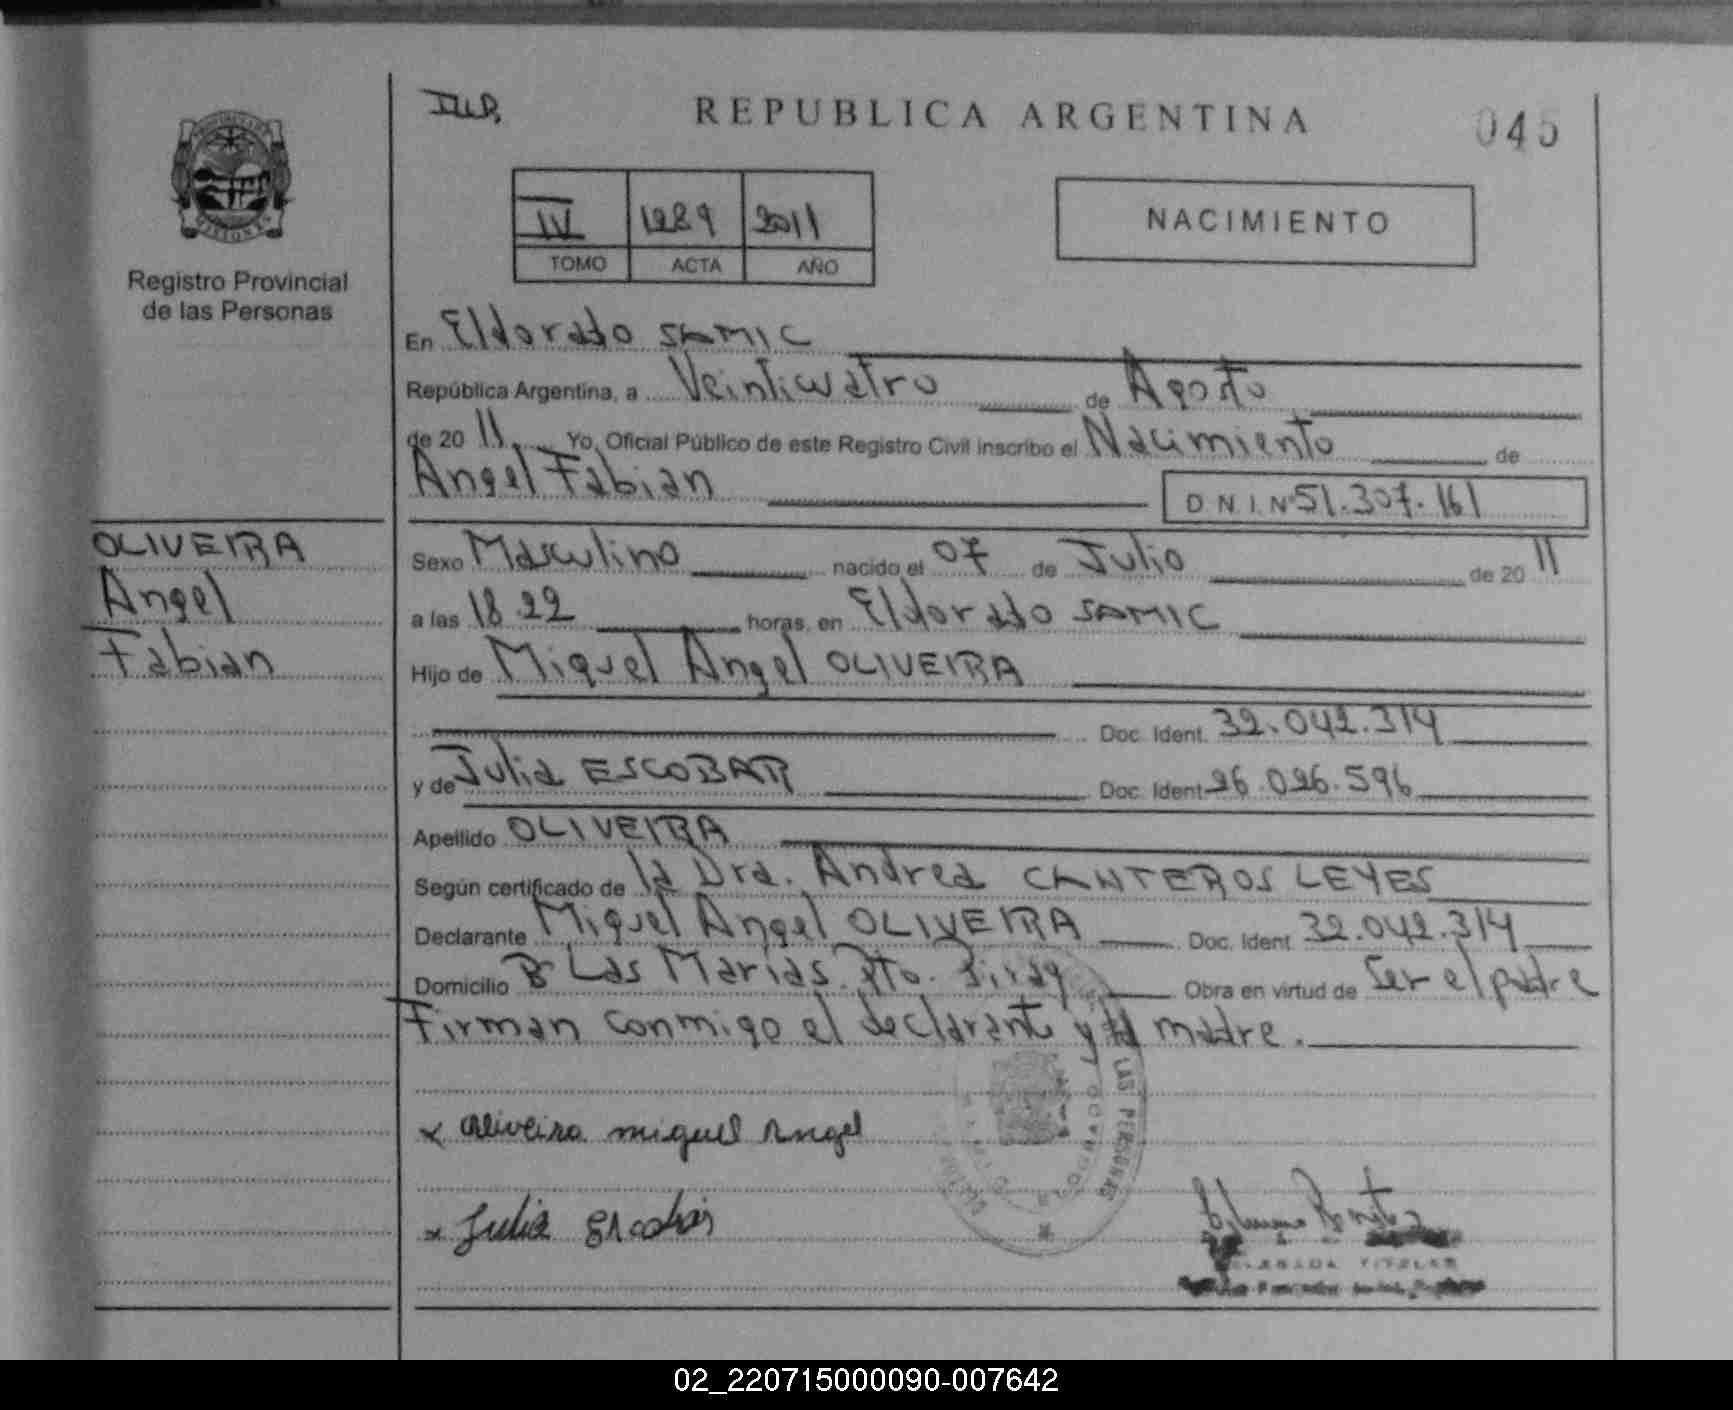 REPUBLICA ARGENTINA
045
IV 1289 2011
TOMO ACTA AÑO
NACIMIENTO
Registro Provincial
de las Personas
En Eldorado SAMIC
República Argentina, a Veinticuatro de Agosto
de 20 11. Yo, Oficial Público de este Registro Civil inscribo el Nacimiento de
Angel Fabian
D.N.I. Nº 51.307.161
OLIVEIRA
Angel
Fabian
Sexo Masculino nacido el 07 de Julio de 20 11
a las 18 22 horas, en Eldorado SAMIC
Hijo de Miguel Angel OLIVEIRA
Doc. Ident. 32.042.314
y de Julia ESCOBAR Doc. Ident 26.026.596
Apellido OLIVEIRA
Según certificado de la Dra. Andrea CANTEROS LEYES
Declarante Miguel Angel OLIVEIRA Doc. Ident 32.042.314
Domicilio Bº Las Marias. Pto. Piray Obra en virtud de Ser el padre
Firman conmigo el declarante y la madre.
LAS PERSONAS
x Oliveira miguel Angel
x Julia Escobar
TITULAR
02_220715000090-007642